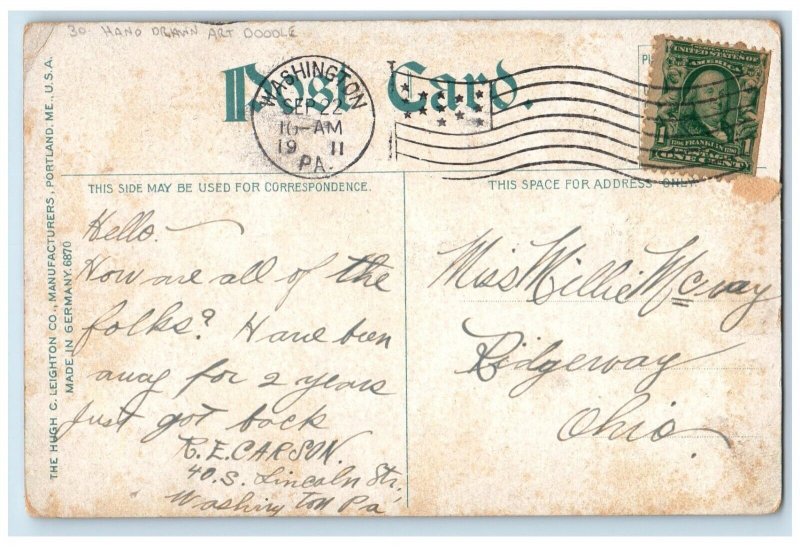 30 HAND DRAWN ART DOODLE
Post Card.
WASHINGTON
SEP 22
10-AM
19 11
PA.
UNITED STATES OF
AMERICA
1 FRANKLIN 1
ONE CENT
THIS SIDE MAY BE USED FOR CORRESPONDENCE.
THIS SPACE FOR ADDRESS ONLY.
THE HUGH C. LEIGHTON CO., MANUFACTURERS, PORTLAND, ME., U.S.A.
MADE IN GERMANY. 6870
Hello.
How are all of the
folks? Have been
away for 2 years
Just got back
R.E. CARSON.
40. S. Lincoln Str,
Washington Pa
Miss Millie McVay
Ridgeway
Ohio.